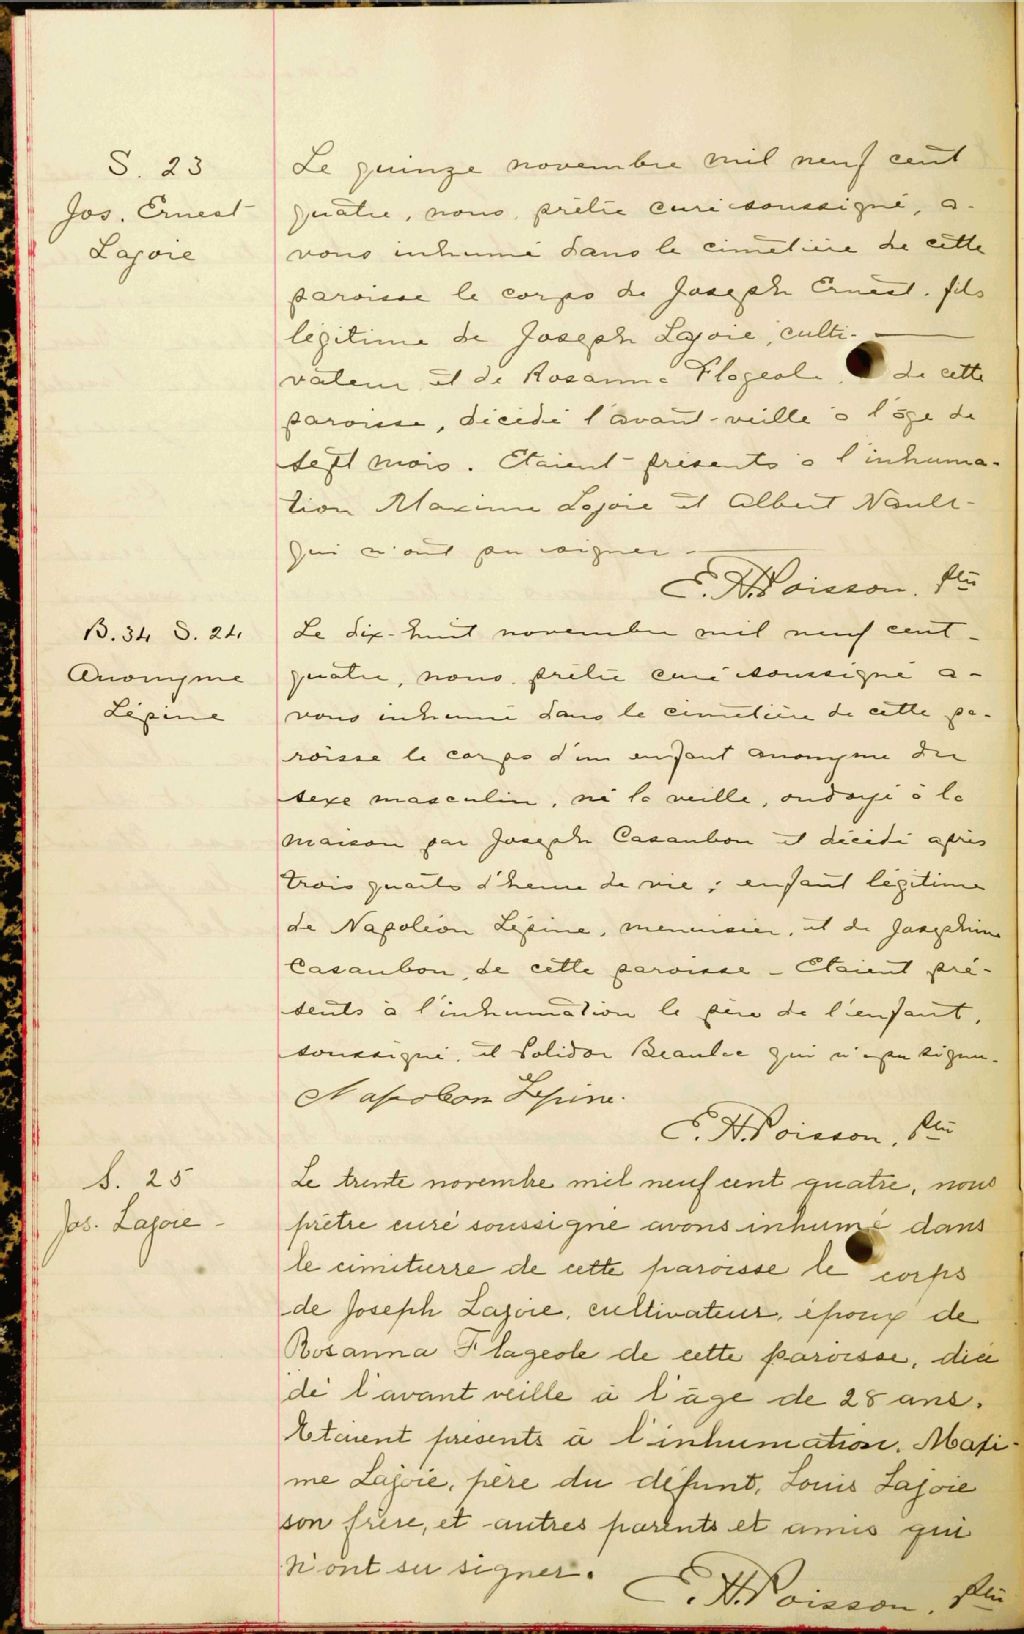 S. 23
Jos. Ernest
Lajoie
Le quinze novembre mil neuf cent
quatre, nous, prêtre curé soussigné, a-
vons inhumé dans le cimetière de cette
paroisse le corps de Joseph Ernest, fils
légitime de Joseph Lajoie, culti-
vateur et de Rosanna Flageole, de cette
paroisse, décédé l'avant-veille à l'âge de
sept mois. Etaient présents à l'inhuma-
tion Maxime Lajoie et Albert Nault
qui n'ont pu signer
E. H. Poisson, Ptre
B. 34 S. 24
Anonyme
Lépine
Le dix-huit novembre mil neuf cent
quatre, nous, prêtre curé soussigné a-
vons inhumé dans le cimetière de cette pa-
roisse le corps d'un enfant anonyme du
sexe masculin, né la veille, ondoyé à la
maison par Joseph Casaubon et décédé après
trois quarts d'heure de vie; enfant légitime
de Napoléon Lépine, menuisier, et de Josephine
Casaubon, de cette paroisse - Etaient pré-
sents à l'inhumation le père de l'enfant,
soussigné, et Polidor Beaulac qui n'a pu signer.
Napoleon Lepine.
E. H. Poisson, Ptre
S. 25
Jos. Lajoie -
Le trente novembre mil neuf cent quatre, nous
prêtre curé soussigné avons inhumé dans
le cimitierre de cette paroisse le corps
de Joseph Lajoie, cultivateur, époux de
Rosanna Flageole de cette paroisse, décé
dé l'avant veille à l'âge de 28 ans.
Etaient présents à l'inhumation, Maxi-
me Lajoie, père du défunt, Louis Lajoie
son frère, et autres parents et amis qui
n'ont su signer.
E. H. Poisson, Ptre